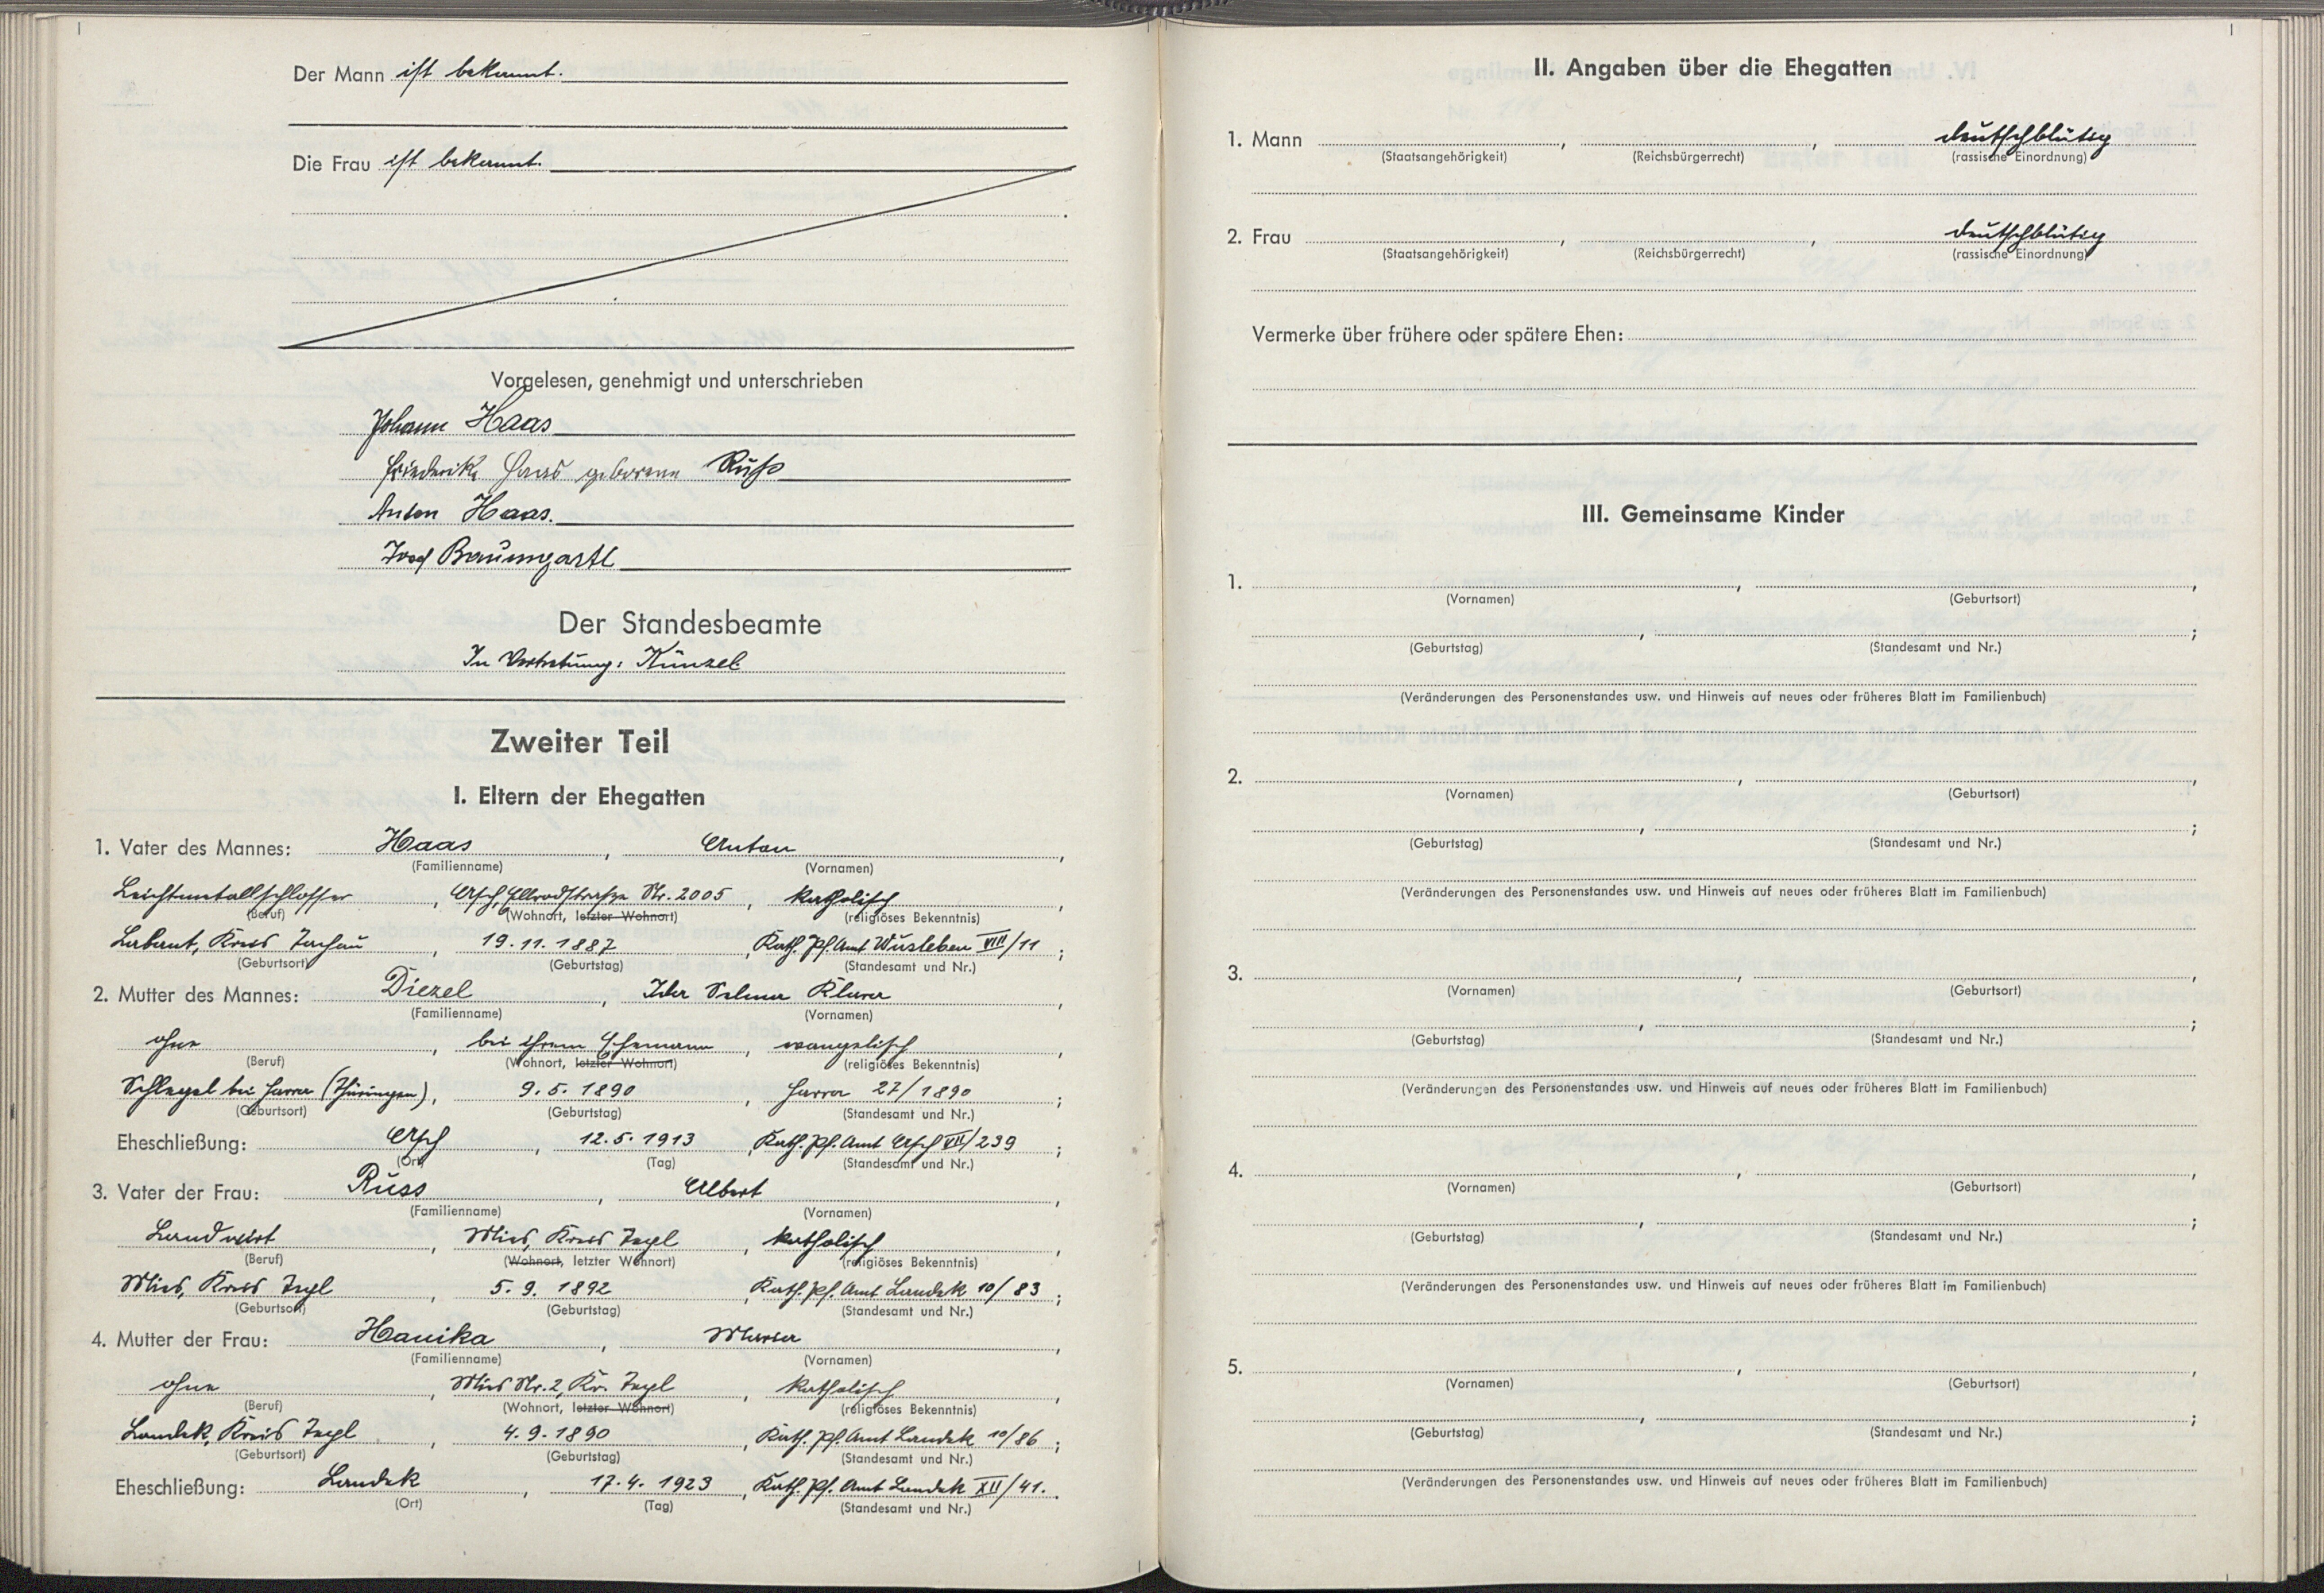 Der Mann ist bekannt.
Die Frau ist bekannt.
Vorgelesen, genehmigt und unterschrieben
Johann Haas
Friederike Haas geborene Russ
Anton Haas.
Josef Baumgartl
Der Standesbeamte
In Vertretung: Künzel
Zweiter Teil
I. Eltern der Ehegatten
1. Vater des Mannes: Haas, Anton,
(Familienname) (Vornamen)
Leichtmetallschlosser, Asch, Ellrodstraße Nr. 2005, katholisch,
(Beruf) (Wohnort, letzter Wohnort) (religiöses Bekenntnis)
Labant, Kreis Tachau, 19.11.1887, Kath. Pf. Amt Wusleben VIII/11;
(Geburtsort) (Geburtstag) (Standesamt und Nr.)
2. Mutter des Mannes: Diezel, Ida Selma Klara,
(Familienname) (Vornamen)
ohne, bei ihrem Ehemann, evangelisch,
(Beruf) (Wohnort, letzter Wohnort) (religiöses Bekenntnis)
Schlegel bei Harra (Thüringen), 9.5.1890, Harra 27/1890;
(Geburtsort) (Geburtstag) (Standesamt und Nr.)
Eheschließung: Asch, 12.5.1913, Kath. Pf. Amt Asch VII/239;
(Ort) (Tag) (Standesamt und Nr.)
3. Vater der Frau: Russ, Albert,
(Familienname) (Vornamen)
Landwirt, Mies, Kreis Tepl, katholisch,
(Beruf) (Wohnort, letzter Wohnort) (religiöses Bekenntnis)
Mies, Kreis Tepl, 5.9.1892, Kath. Pf. Amt Landek 10/83;
(Geburtsort) (Geburtstag) (Standesamt und Nr.)
4. Mutter der Frau: Hanika, Maria,
(Familienname) (Vornamen)
ohne, Mies Nr. 2, Kr. Tepl, katholisch,
(Beruf) (Wohnort, letzter Wohnort) (religiöses Bekenntnis)
Landek, Kreis Tepl, 4.9.1890, Kath. Pf. Amt Landek 10/86;
(Geburtsort) (Geburtstag) (Standesamt und Nr.)
Eheschließung: Landek, 17.4.1923, Kath. Pf. Amt Landek XII/41.
(Ort) (Tag) (Standesamt und Nr.)
II. Angaben über die Ehegatten
1. Mann , , deutschblütig
(Staatsangehörigkeit) (Reichsbürgerrecht) (rassische Einordnung)
2. Frau , , deutschblütig
(Staatsangehörigkeit) (Reichsbürgerrecht) (rassische Einordnung)
Vermerke über frühere oder spätere Ehen:
III. Gemeinsame Kinder
1. , ,
(Vornamen) (Geburtsort)
, ;
(Geburtstag) (Standesamt und Nr.)
(Veränderungen des Personenstandes usw. und Hinweis auf neues oder früheres Blatt im Familienbuch)
2. , ,
(Vornamen) (Geburtsort)
, ;
(Geburtstag) (Standesamt und Nr.)
(Veränderungen des Personenstandes usw. und Hinweis auf neues oder früheres Blatt im Familienbuch)
3. , ,
(Vornamen) (Geburtsort)
, ;
(Geburtstag) (Standesamt und Nr.)
(Veränderungen des Personenstandes usw. und Hinweis auf neues oder früheres Blatt im Familienbuch)
4. , ,
(Vornamen) (Geburtsort)
, ;
(Geburtstag) (Standesamt und Nr.)
(Veränderungen des Personenstandes usw. und Hinweis auf neues oder früheres Blatt im Familienbuch)
5. , ,
(Vornamen) (Geburtsort)
, ;
(Geburtstag) (Standesamt und Nr.)
(Veränderungen des Personenstandes usw. und Hinweis auf neues oder früheres Blatt im Familienbuch)